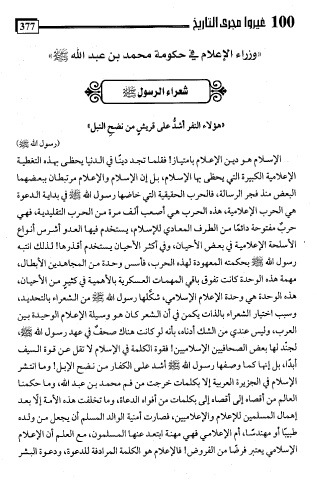 100 غيروا مجرى التاريخ
377
«وزراء الإعلام في حكومة محمد بن عبد الله ﷺ»
شعراء الرسول ﷺ
«هؤلاء النفر أشدُّ على قريش من نضح النبل»
(رسول الله ﷺ)
الإسلام هو دين الإعلام بامتياز! فقلما تجد دينًا في الدنيا يحظى بهذه التغطية
الإعلامية الكبيرة التي يحظى بها الإسلام، بل إن الإسلام والإعلام مرتبطان ببعضهما
البعض منذ فجر الرسالة، فالحرب الحقيقية التي خاضها رسول الله ﷺ في بداية الدعوة
هي الحرب الإعلامية، هذه الحرب هي أصعب ألف مرة من الحرب التقليدية، فهي
حربٌ مفتوحة دائمًا من الطرف المعادي للإسلام، يستخدم فيها العدو أشرس أنواع
الأسلحة الإعلامية في بعض الأحيان، وفي أكثر الأحيان يستخدم أقذرها! لذلك انتبه
رسول الله ﷺ بحكمته المعهودة لهذه الحرب، فأسس وحدة من المجاهدين الأبطال،
مهمة هذه الوحدة كانت تفوق باقي المهمات العسكرية بالأهمية في كثيرٍ من الأحيان،
هذه الوحدة هي وحدة الإعلام الإسلامي، شكّلها رسول الله ﷺ من الشعراء بالتحديد،
وسبب اختيار الشعراء بالذات يكمن في أن الشعر كان هو وسيلة الإعلام الوحيدة بين
العرب، وليس عندي من الشك أدناه بأنه لو كانت هناك صحفٌ في عهد رسول الله ﷺ،
لجنّد لها بعض الصحافيين الإسلاميين! فقوة الكلمة في الإسلام لا تقل عن قوة السيف
أبدًا، بل إنها كما وصفها رسول الله ﷺ أشد على الكفار من نضح الإبل! وما انتشر
الإسلام في الجزيرة العربية إلا بكلمات خرجت من فم محمد بن عبد الله، وما حكمنا
العالم من أقصاه إلى أقصاه إلى بكلمات من أفواه الدعاة، وما تخلفت هذه الأمة إلّا بعد
إهمال المسلمين للإعلام والإعلاميين، فصارت أمنية الوالد المسلم أن يجعل من ولده
طبيبًا أو مهندسًا، أم الإعلامي فهي مهنة ابتعد عنها المسلمون، مع العلم أن الإعلام
الإسلامي يعتبر فرضًا من الفروض! فالإعلام هو الكلمة المرادفة للدعوة، ودعوة البشر